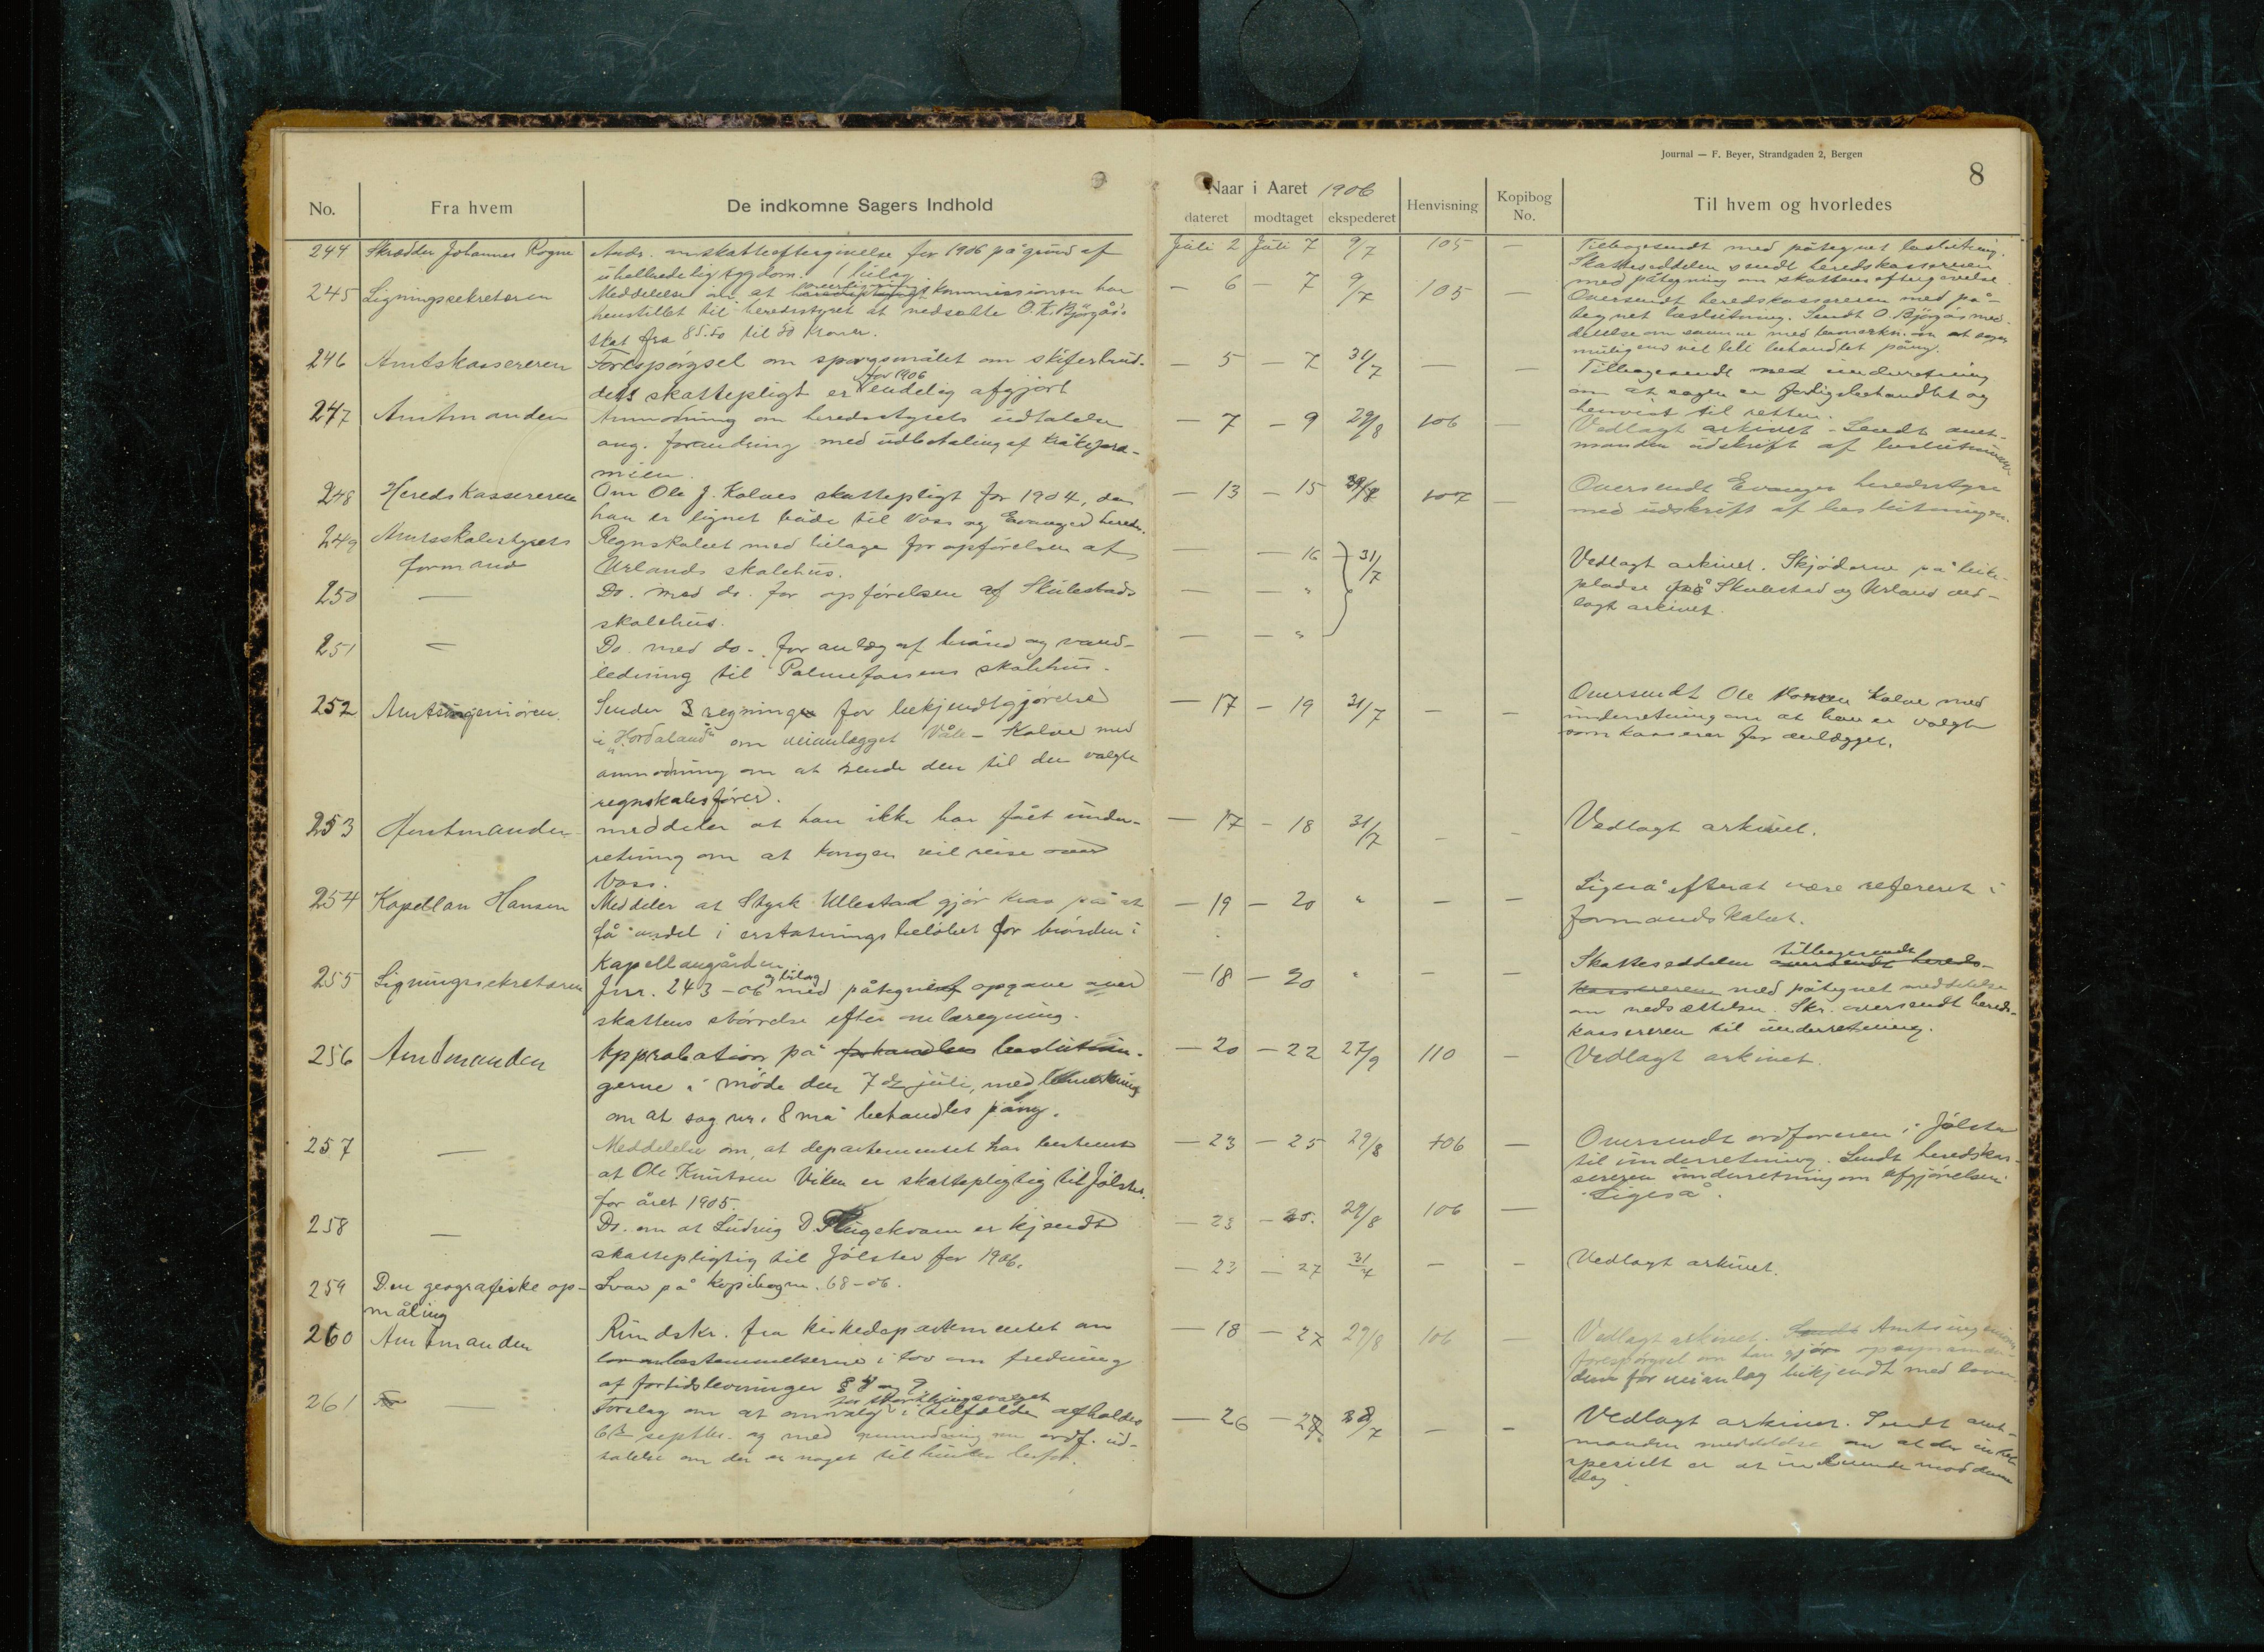 Journal — F. Beyer, Strandgaden 2, Bergen
8
No.
Fra hvem
De indkomne Sagers Indhold
Naar i Aaret 1906
dateret modtaget ekspederet
Henvisning
Kopibog No.
Til hvem og hvorledes
244 Skrædder Johannes Rogne Ands. om skatteeftergivelse for 1906 på grund af Juli 2 Juli 7 9/7 105 — Tilbagesendt med påtegnet beslutning.
uhelbredelig sygdom. 1 bilag Skattesedlen sendt heredskassereren
med påtegning om skattens eftergivelse.
245 Ligningssekretæren Meddelelse om at overligningskommissionen har — 6 — 7 9/7 105 — Oversendt heredskassereren med på-
henstillet til heredsstyret at nedsætte O. K. Bjørgås's tegnet beslutning. Sendt O. Bjørgås med-
skat fra 85.50 til 50 kroner. delelse om samme med bemerkn. om at sagen
muligens vil bli behandlet påny.
246 Amtskassereren Forespørgsel om spørgsmålet om skiferbrud- — 5 — 7 31/7 — — Tilbagesendt med underretning
dets skattepligt for 1906 er endelig afgjort om at sagen er færdigbehandlet og
henvist til retten.
247 Amtmanden Anmodning om heredsstyrets udtalelse — 7 — 9 29/8 106 — Vedlagt arkivet. Sendt amt-
ang. forandring med udbetaling af kråkepræ- manden udskrift af beslutningen
mien.
248 Heredskassereren Om Ole J. Kolves skattepligt for 1904, da — 13 — 15 29/8 107 — Oversendt Evanger heredsstyre
han er lignet både til Voss og Evanger hered. med udskrift af beslutningen.
249 Amtsskolestyrets Regnskabet med bilage for opførelsen af — — 16 31/7 Vedlagt arkivet. Skjøderne på tuke-
formand Urlands skolehus. pladse på Skulestad og Urland ved-
250 — Do. med do. for opførelsen af Skulestads — — " lagt arkivet.
skolehus.
251 — Do. med do. for anlæg af brønd og vand- — — "
ledning til Palmefossens skolehus.
252 Amtsingeniøren. Sender 3 regninger for bekjendtgjørelse — 17 — 19 31/7 — — Oversendt Ole Kolve med
i "Hordaland" om veianlægget Våle – Kolve med underretning om at han er valgt
anmodning om at sende den til den valgte som kasserer for anlægget.
regnskabsfører.
253 Amtmanden meddeler at han ikke har fået under- — 17 — 18 31/7 — — Vedlagt arkivet.
retning om at kongen vil reise over
Voss.
254 Kapellan Hansen Meddeler at Styrk Ullestad gjør krav på at — 19 — 20 " — — Ligeså efterat være refereret i
få andel i erstatningsbeløbet for brønden i formandskabet.
Kapellangården.
255 Ligningssekretæren Jnr. 243–06 og bilag med påtegning opgave over — 18 — 20 " — — Skattesedlen tilbagesendt oversendt hereds-
skattens størrelse efter omberegning. kassereren med påtegnet meddelelse
om nedsættelsen. Skr. oversendt hereds-
kassereren til underretning.
256 Amtmanden Approbation på forhandles beslutnin- — 20 — 22 27/9 110 — Vedlagt arkivet.
gerne i møde den 7de juli, med bemerkning
om at sag nr. 8 må behandles påny.
257 — Meddelelse om, at departementet har bestemt — 23 — 25 29/8 106 — Oversendt ordføreren i Jølster
at Ole Knutsen Viken er skattepligtig til Jølster til underretning. Sendt heredskas-
for året 1905. sereren underretning om afgjørelsen.
258 — Do. om at Ludvig D. Flugekvam er kjendt — 23 — 25. 29/8 106 — Ligeså.
skattepligtig til Jølster for 1906.
259 Den geografiske op- Svar på kopibognr. 68–06. — 23 — 27 31/7 — — Vedlagt arkivet.
måling
260 Amtmanden Rundskr. fra kirkedepartementet om — 18 — 27 29/8 106 — Vedlagt arkivet. Sendt Amtsingeniøren
lovenbestemmelserne i lov om fredning forespørgsel om han gjør opsynsmæn-
af fortidslevninger § 4 og 9 dene for veianlæg bekjendt med loven.
261 — Forslag om at omvalg i tilfælde for storthingsvalget afholdes — 26 — 28 28/7 — — Vedlagt arkivet. Sendt amt-
6te septbr. og med anmodning om ordf. ud- manden meddelelse om at der intet
talelse om der er noget til hinder herfor. specielt er at indvende mod denne
dag.